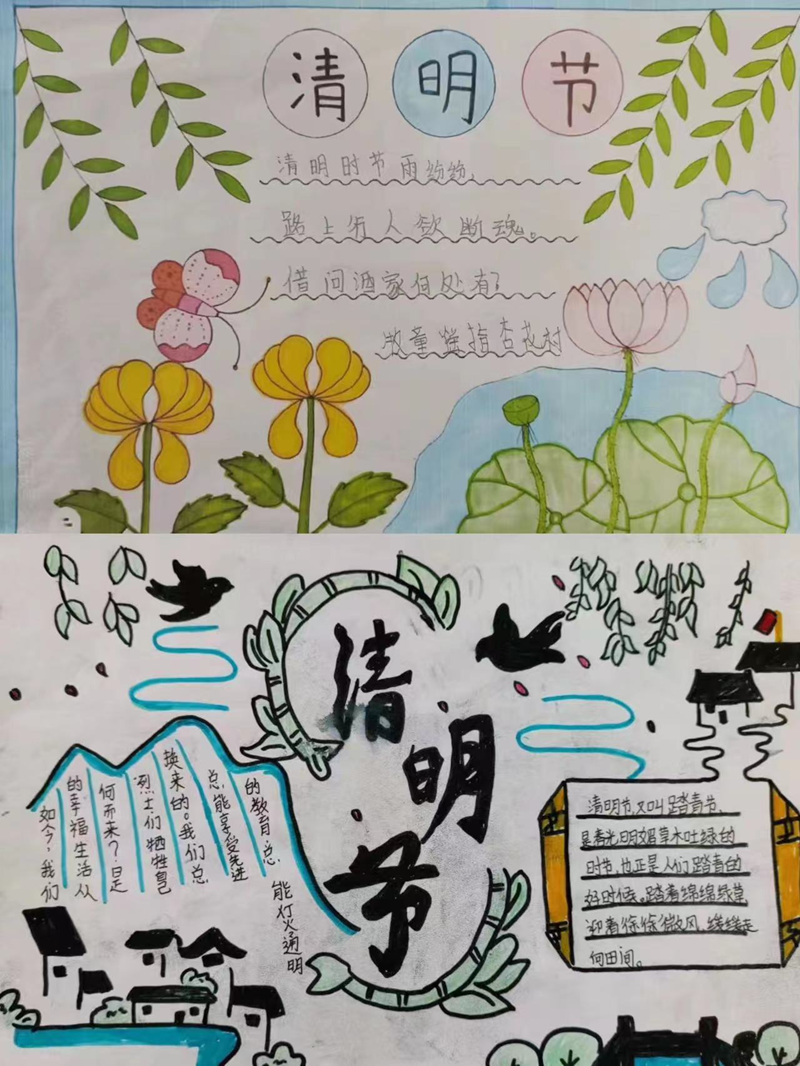 清明节
清明时节雨纷纷,
路上行人欲断魂。
借问酒家何处有?
牧童遥指杏花村
清明节
如今,我们
的幸福生活从
何而来?是
烈士们牺牲自己
换来的。我们总
总能享受先进
的教育总,
能灯火通明
清明节,又叫踏青节,
是春光明媚草木吐绿的
时节,也正是人们踏青的
好时候。踏着绵绵绿草
迎着徐徐微风,缓缓走
何田间。